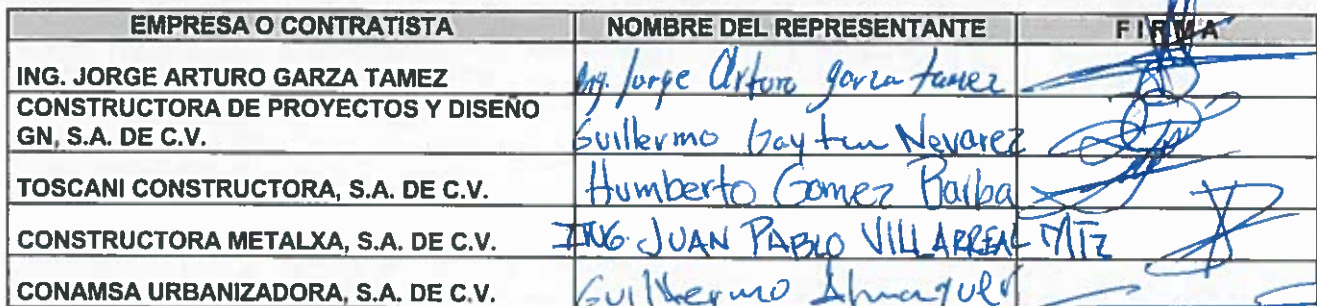 EMPRESA O CONTRATISTA NOMBRE DEL REPRESENTANTE FIRMA
ING. JORGE ARTURO GARZA TAMEZ Ing. Jorge Arturo garza tamez
CONSTRUCTORA DE PROYECTOS Y DISEÑO
GN, S.A. DE C.V. Guillermo Gaytan Nevarez
TOSCANI CONSTRUCTORA, S.A. DE C.V. Humberto Gomez Barba
CONSTRUCTORA METALXA, S.A. DE C.V. ING. JUAN PABLO VILLARREAL MTZ
CONAMSA URBANIZADORA, S.A. DE C.V. Guillermo Almaguer